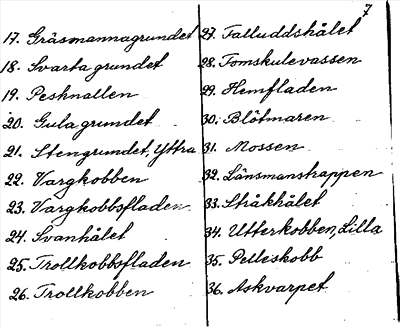 7
17. Gräsmannagrundet
18. Svarta grundet
19. Pesknallen
20. Gula grundet
21. Stengrundet, Yttra
22. Vargkobben
23. Vargkobbsfladen
24. Svanhålet
25. Trollkobbsfladen
26. Trollkobben
27. Falluddshålet
28. Tomskulevassen
29. Hemfladen
30. Blötmaren
31. Mossen
32. Länsmanstrappen
33. Stråkhålet
34. Utterkobben, Lilla
35. Pelleskobb
36. Askvarpet